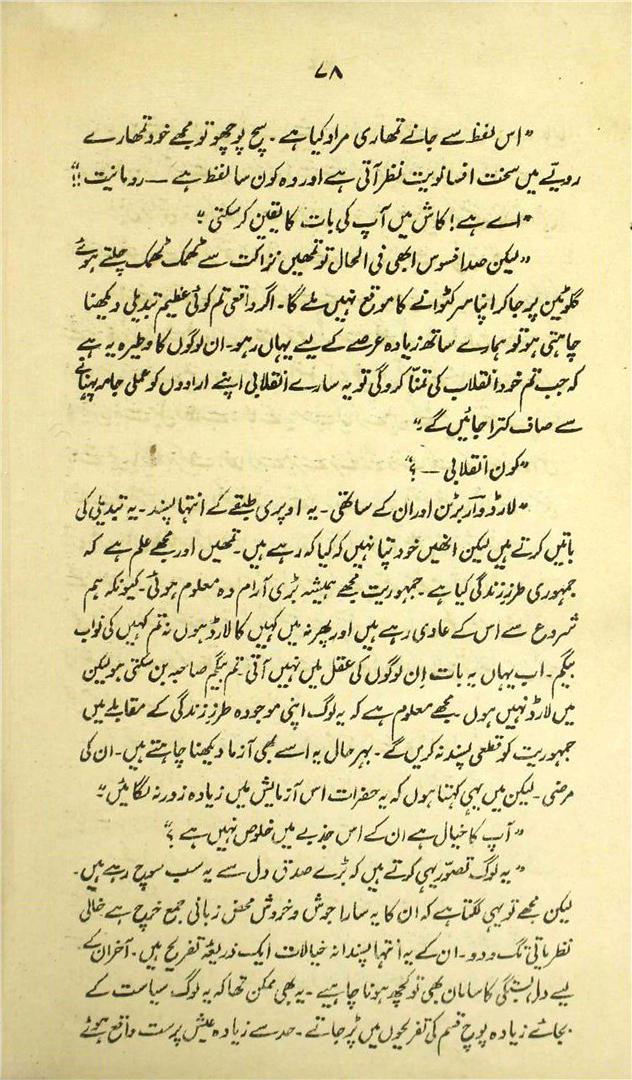 ۷۸
"اس لفظ سے جانے تمھاری مراد کیا ہے۔ سچ پوچھو تو مجھے خود تمھارے
رویّے میں سخت افسانویت نظر آتی ہے اور وہ کون سا لفظ ہے — رومانیت!!"
"اے ہے! کاش میں آپ کی بات کا یقین کر سکتی۔"
"لیکن صد افسوس ابھی فی الحال تو تمھیں نزاکت سے ٹھمک ٹھمک چلتے ہوئے
گلوٹین پر جا کر اپنا سر کٹوانے کا موقع نہیں ملے گا۔ اگر واقعی تم کوئی عظیم تبدیلی دیکھنا
چاہتی ہو تو ہمارے ساتھ زیادہ عرصے کے لیے یہاں رہو۔ ان لوگوں کا وطیرہ یہ ہے
کہ جب تم خود انقلاب کی تمنّا کرو گی تو یہ سارے انقلابی اپنے ارادوں کو عملی جامہ پہنانے
سے صاف کترا جائیں گے۔"
"کون انقلابی — ؟"
"لارڈ وآربرٹن اور ان کے ساتھی۔ یہ اوپری طبقے کے انتہا پسند۔ یہ تبدیلی کی
باتیں کرتے ہیں لیکن انھیں خود پتا نہیں کہ کیا کہہ رہے ہیں۔ تمھیں اور مجھے علم ہے کہ
جمہوری طرزِ زندگی کیا ہے۔ جمہوریت مجھے ہمیشہ بڑی آرام دہ معلوم ہوئی۔ کیونکہ ہم
شروع سے اس کے عادی رہے ہیں اور پھر نہ میں کہیں کا لارڈ ہوں نہ تم کہیں کی نواب
بیگم۔ اب یہاں یہ بات اِن لوگوں کی عقل میں نہیں آتی۔ تم بیگم صاحبہ بن سکتی ہو لیکن
میں لارڈ نہیں ہوں۔ مجھے معلوم ہے کہ یہ لوگ اپنی موجودہ طرزِ زندگی کے مقابلے میں
جمہوریت کو قطعی پسند نہ کریں گے۔ بہر حال یہ اسے بھی آزما دیکھنا چاہتے ہیں۔ ان کی
مرضی۔ لیکن میں یہی کہتا ہوں کہ یہ حضرات اس آزمایش میں زیادہ زور نہ لگائیں۔"
"آپ کا خیال ہے ان کے اس جذبے میں خلوص نہیں ہے؟"
"یہ لوگ تصوّر یہی کرتے ہیں کہ بڑے صدق دل سے یہ سب سوچ رہے ہیں۔
لیکن مجھے تو یہی لگتا ہے کہ ان کا یہ سارا جوش و خروش محض زبانی جمع خرچ ہے خالی
نظریاتی تگ و دو۔ ان کے یہ انتہا پسندانہ خیالات ایک ذریعۂ تفریح ہیں۔ آخر ان کے
لیے دل بستگی کا سامان بھی تو کچھ ہونا چاہیے۔ یہ بھی ممکن تھا کہ یہ لوگ سیاست کے
بجائے زیادہ پوچ قسم کی تفریحوں میں پڑ جاتے۔ حد سے زیادہ عیش پرست واقع ہوئے